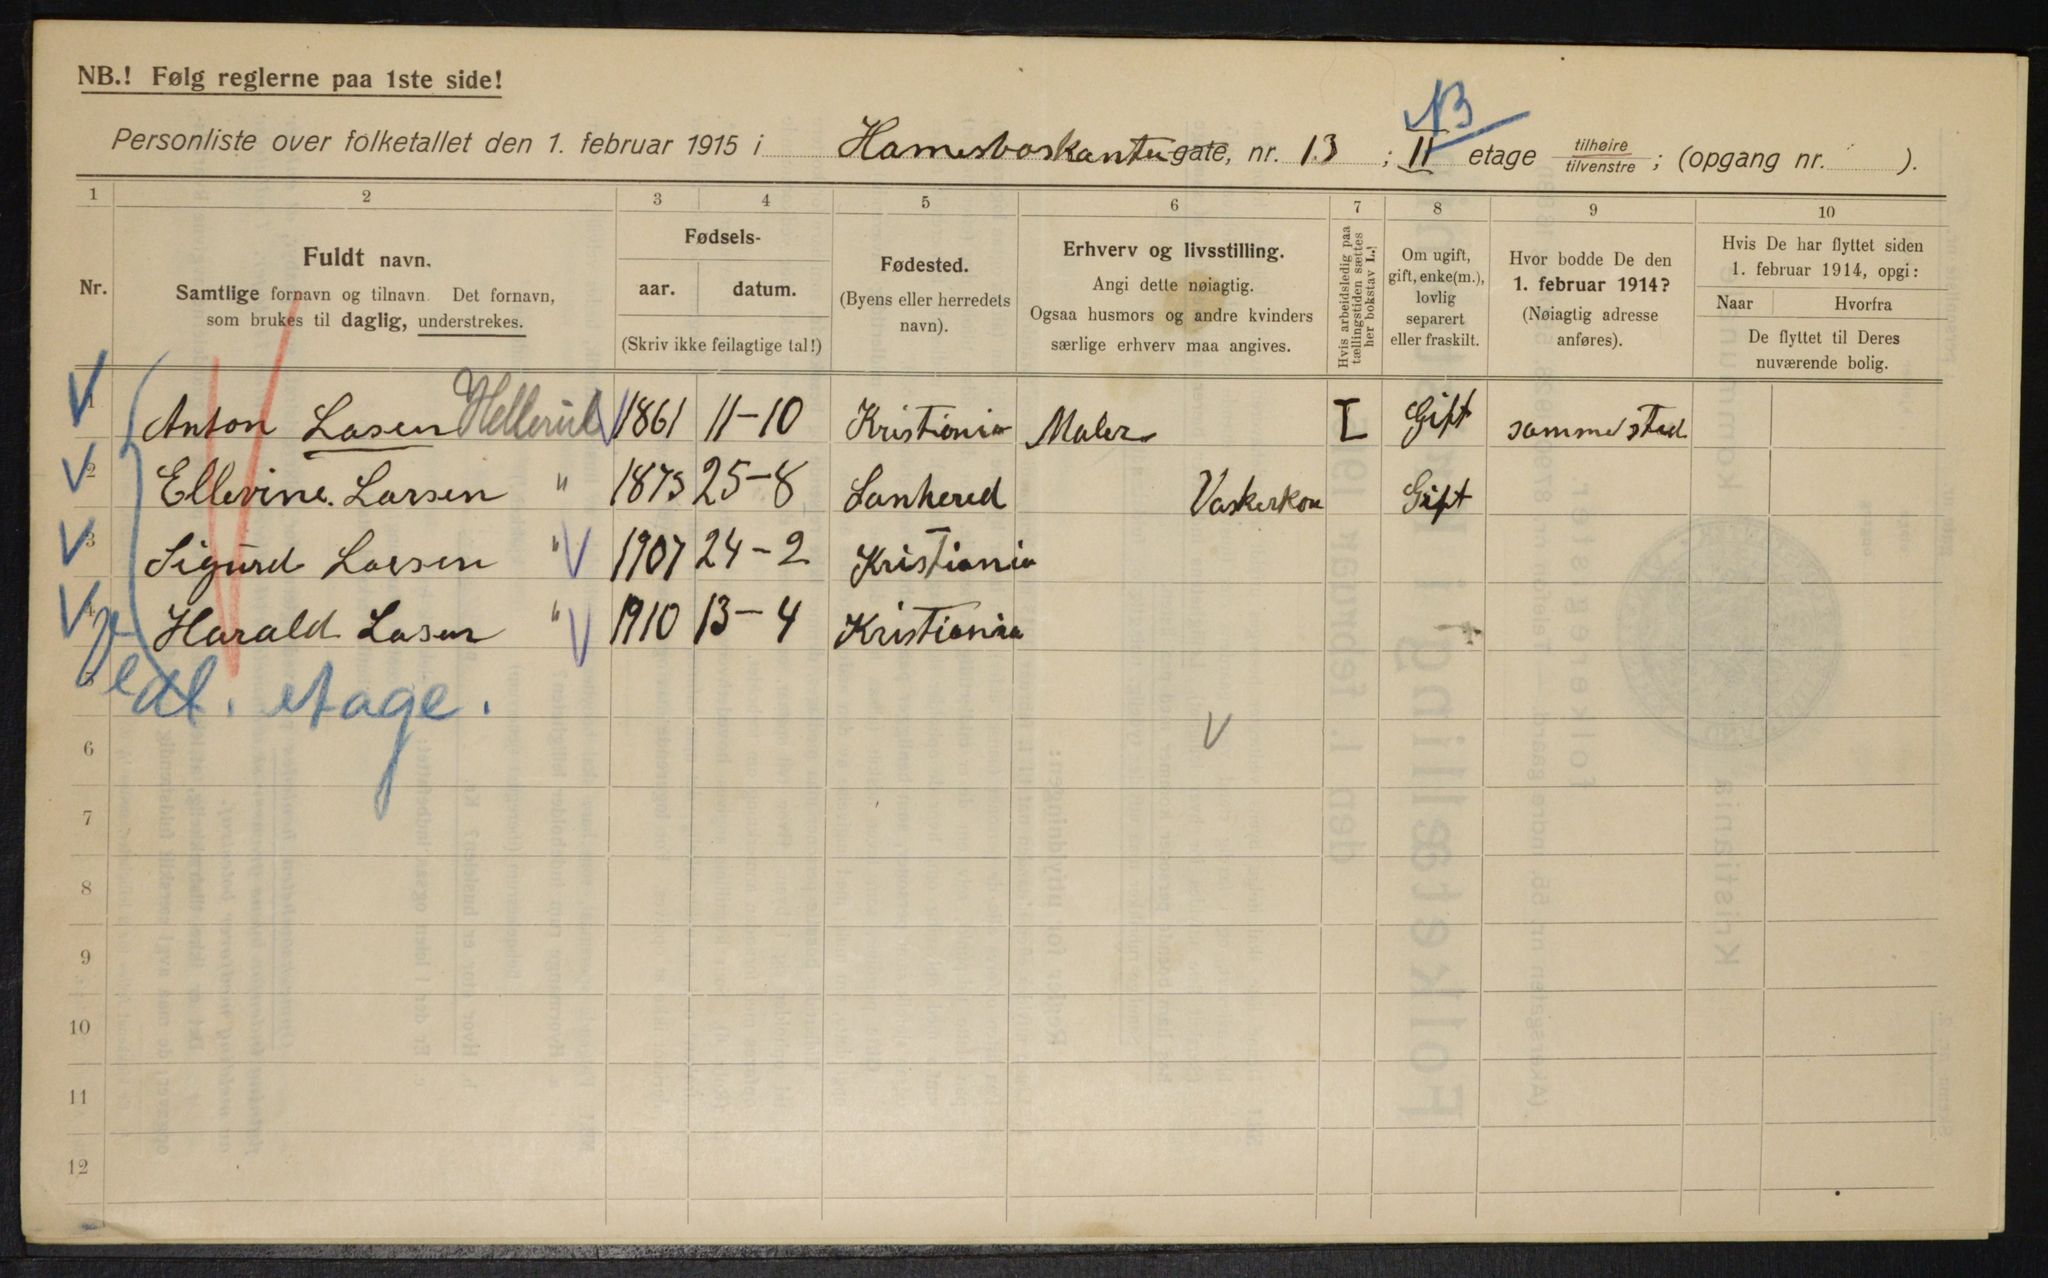 NB.! Følg reglerne paa 1ste side!
NB
Personliste over folketallet den 1. februar 1915 i Hamesboskanten gate, nr. 13 ; II etage tilhøire / tilvenstre ; (opgang nr. ).
1 2 3 4 5 6 7 8 9 10
Nr.
Fuldt navn.
Samtlige fornavn og tilnavn. Det fornavn,
som brukes til daglig, understrekes.
Fødsels-
aar. datum.
(Skriv ikke feilagtige tal!)
Fødested.
(Byens eller herredets
navn).
Erhverv og livsstilling.
Angi dette nøiagtig.
Ogsaa husmors og andre kvinders
særlige erhverv maa angives.
Hvis arbeidsledig paa
tællingstiden sættes
her bokstav L.!
Om ugift,
gift, enke(m.),
lovlig
separert
eller fraskilt.
Hvor bodde De den
1. februar 1914?
(Nøiagtig adresse
anføres).
Hvis De har flyttet siden
1. februar 1914, opgi:
Naar Hvorfra
De flyttet til Deres
nuværende bolig.
1 Anton Lasen Hellerud 1861 11-10 Kristiania Maler I Gift samme sted
2 Ellevine. Larsen " 1875 25-8 Sanhered Vaskerkone Gift
3 Sigurd Larsen " 1907 24-2 Kristiania
4 Harald Lasen " 1910 13-4 Kristiania
5 etage.
6
7
8
9
10
11
12